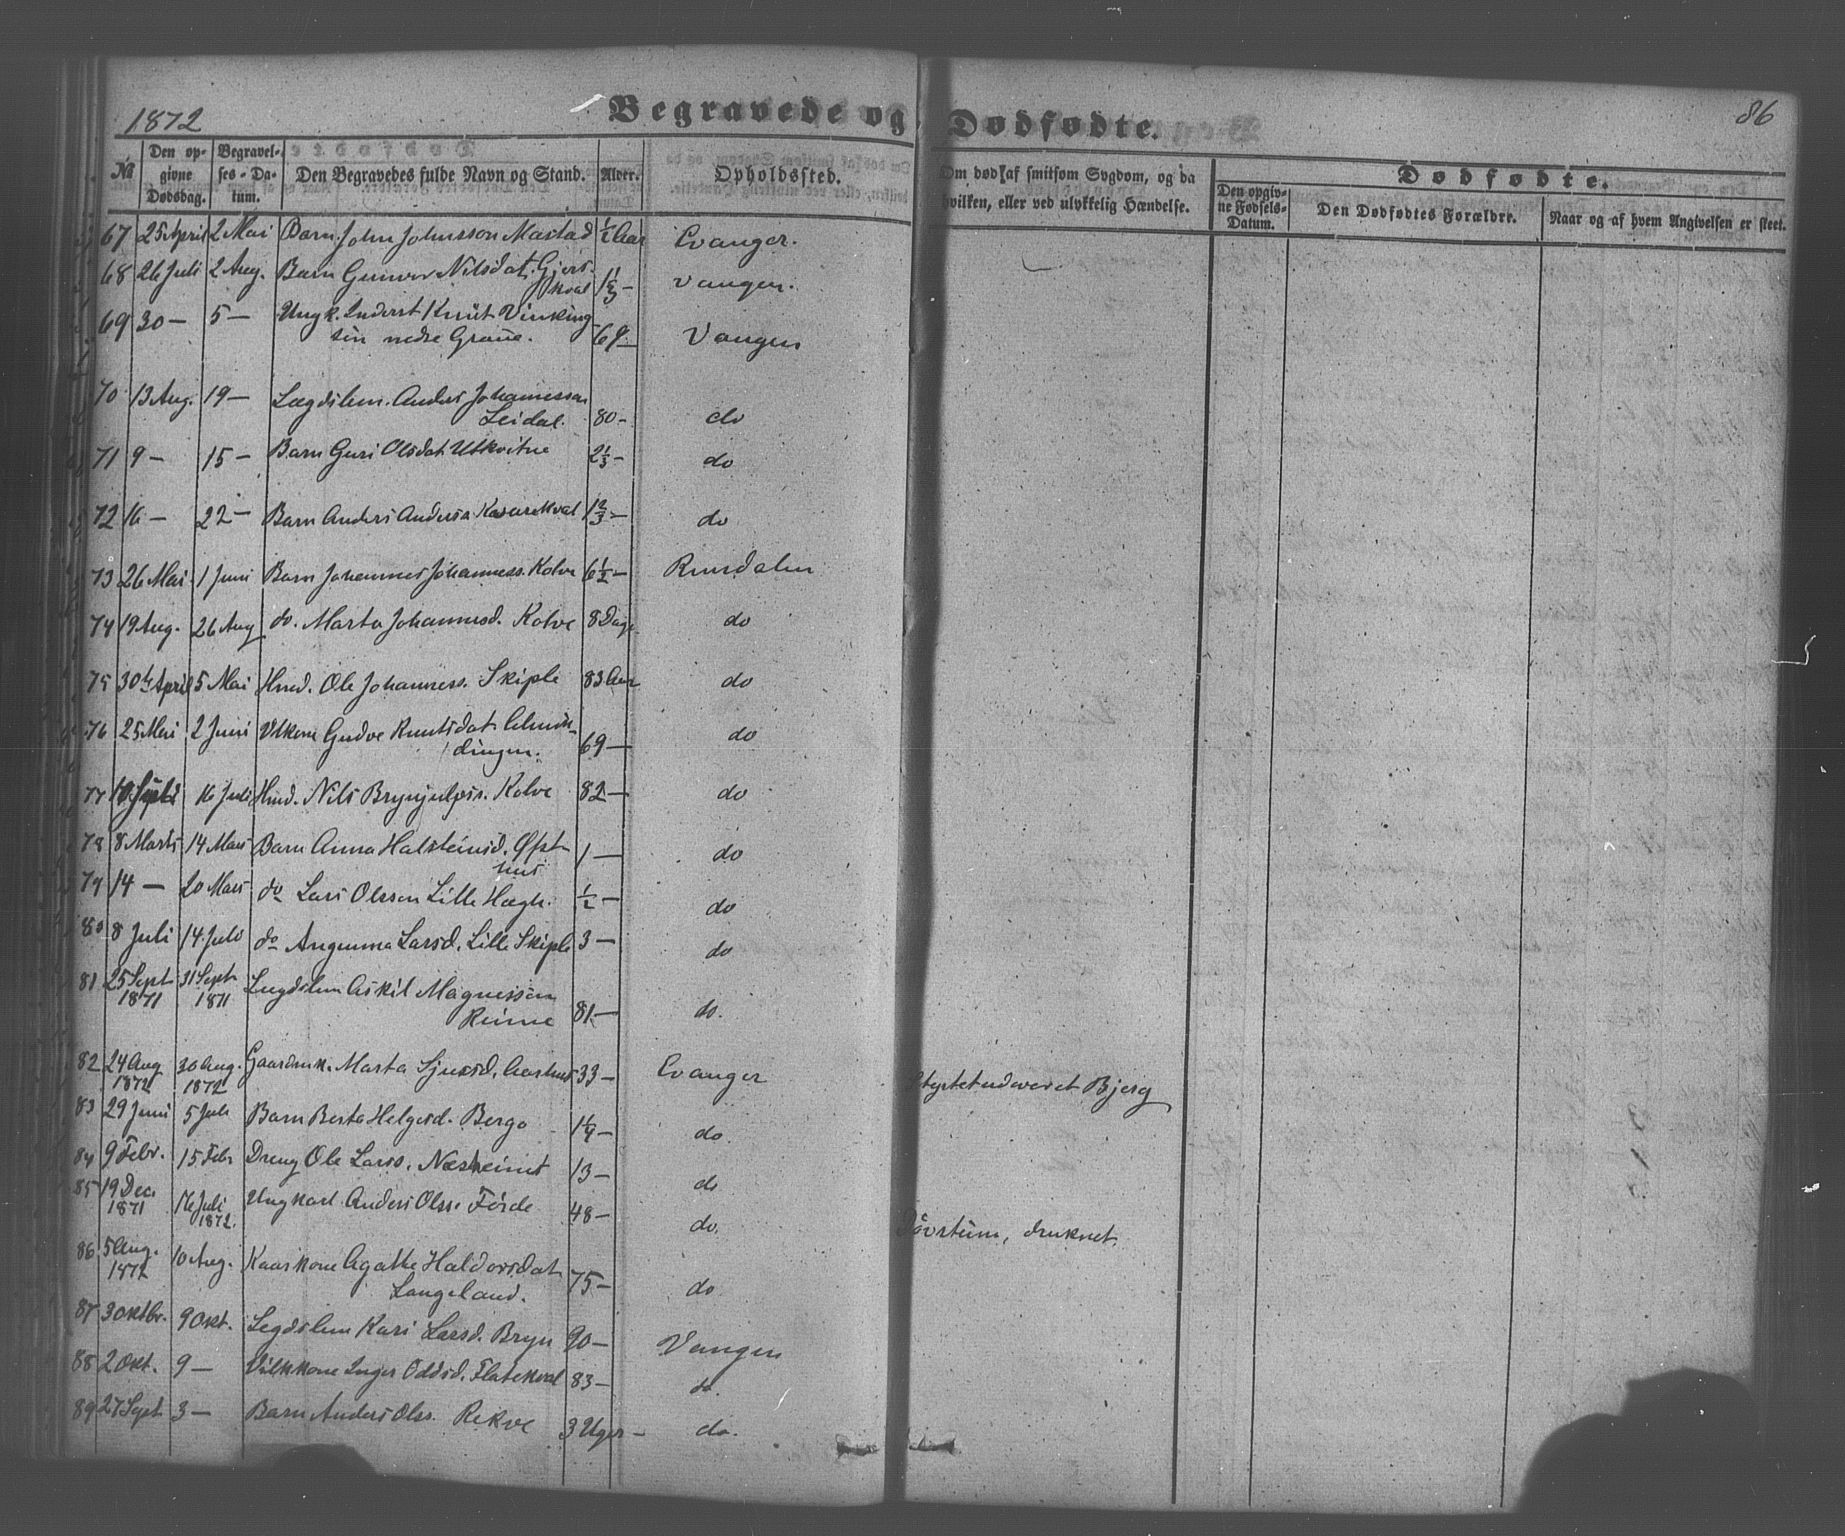 1872 Begravede og Dødfødte. 86
No Den opgivne Dødsdag. Begravelses-Datum. Den Begravedes fulde Navn og Stand. Alder. Opholdssted. Om død af smitsom Sygdom, og da hvilken, eller ved ulykkelig Hændelse. Dødfødte. Den opgivne Fødsels-Datum. Den Dødfødtes Forældre. Naar og af hvem Angivelsen er skeet.
67 25 April 2 Mai Barn John Johnsson Mastad 1/2 Aar Evanger.
68 26 Juli 2 Aug. Barn Gunvor Nilsdat. Gjers-
kval 1 2/3 — Vangen.
69 30 — 5 — Ungk. Inderst Knut Vinking
sen nedre Graue. 69 — Vangen
70 13 Aug. 19 — Lægdslem. Anders Johannesson
Leidal. 80 - do
71 9 — 15 — Barn Guri Olsdat. Utkvitne 2 1/3 — do
72 16 — 22 — Barn Anders Anderss Kvarekval 1 2/3 — do
73 26 Mai 1 Juni Barn Johannes Johanness. Kolve 6 1/2 — Runsdalen
74 19 Aug. 26 Aug do. Marta Johannesd. Kolve 8 Dage do
75 30te April 5 Mai Hmd. Ole Johanness. Skiple 83 Aar do
76 25 Mai 2 Juni Vlkone Gudve Knutsdat. Almin-
dingen. 69 — do
77 10 16 Juli Hmd. Nils Brynjulvss. Kolve 82 — do
78 8 Marts 14 Mars Barn Anna Halsteinsd. Øfst
hus 1 — do
79 14 — 20 Mars do Lars Olsson Lille Hægh. 1/2 — do
80 8 Juli 14 Juli do Angunna Larsd. Lille Skiple 3 — do
81 25 Sept 1871 31 Sept 1871 Lægdslem Askil Magnesson
Rinne 81 — do.
82 24 Aug 1872 30 Aug. 1872 Gaardmk. Marta Sjursd. Aarhus 33 — Evanger Styrtet udoveret Bjerg
83 29 Juni 5 Juli Barn Berta Helgesd. Berge 1 1/4 — do.
84 9 Febr. 15 Febr Dreng Ole Larss. Næsheimt 13 — do
85 19 Dec. 1871 16 Juli 1872. Ungkarl Anders Olss. Førde 48 — do. Døvstum, druknet.
86 5 Aug. 1872 10 Aug. Kaarkone Agathe Haldorsdat
Langeland. 75 — do.
87 3 Oktbr. 9 Okt. Legdslem Kari Larsd. Bryn 90 — Vangen
88 2 Okt. 9 — Vilkkone Inger Oddsd. Flatekval 83 — do.
89 27 Sept 3 — Barn Anders Olss. Rekve 3 Uger — do.